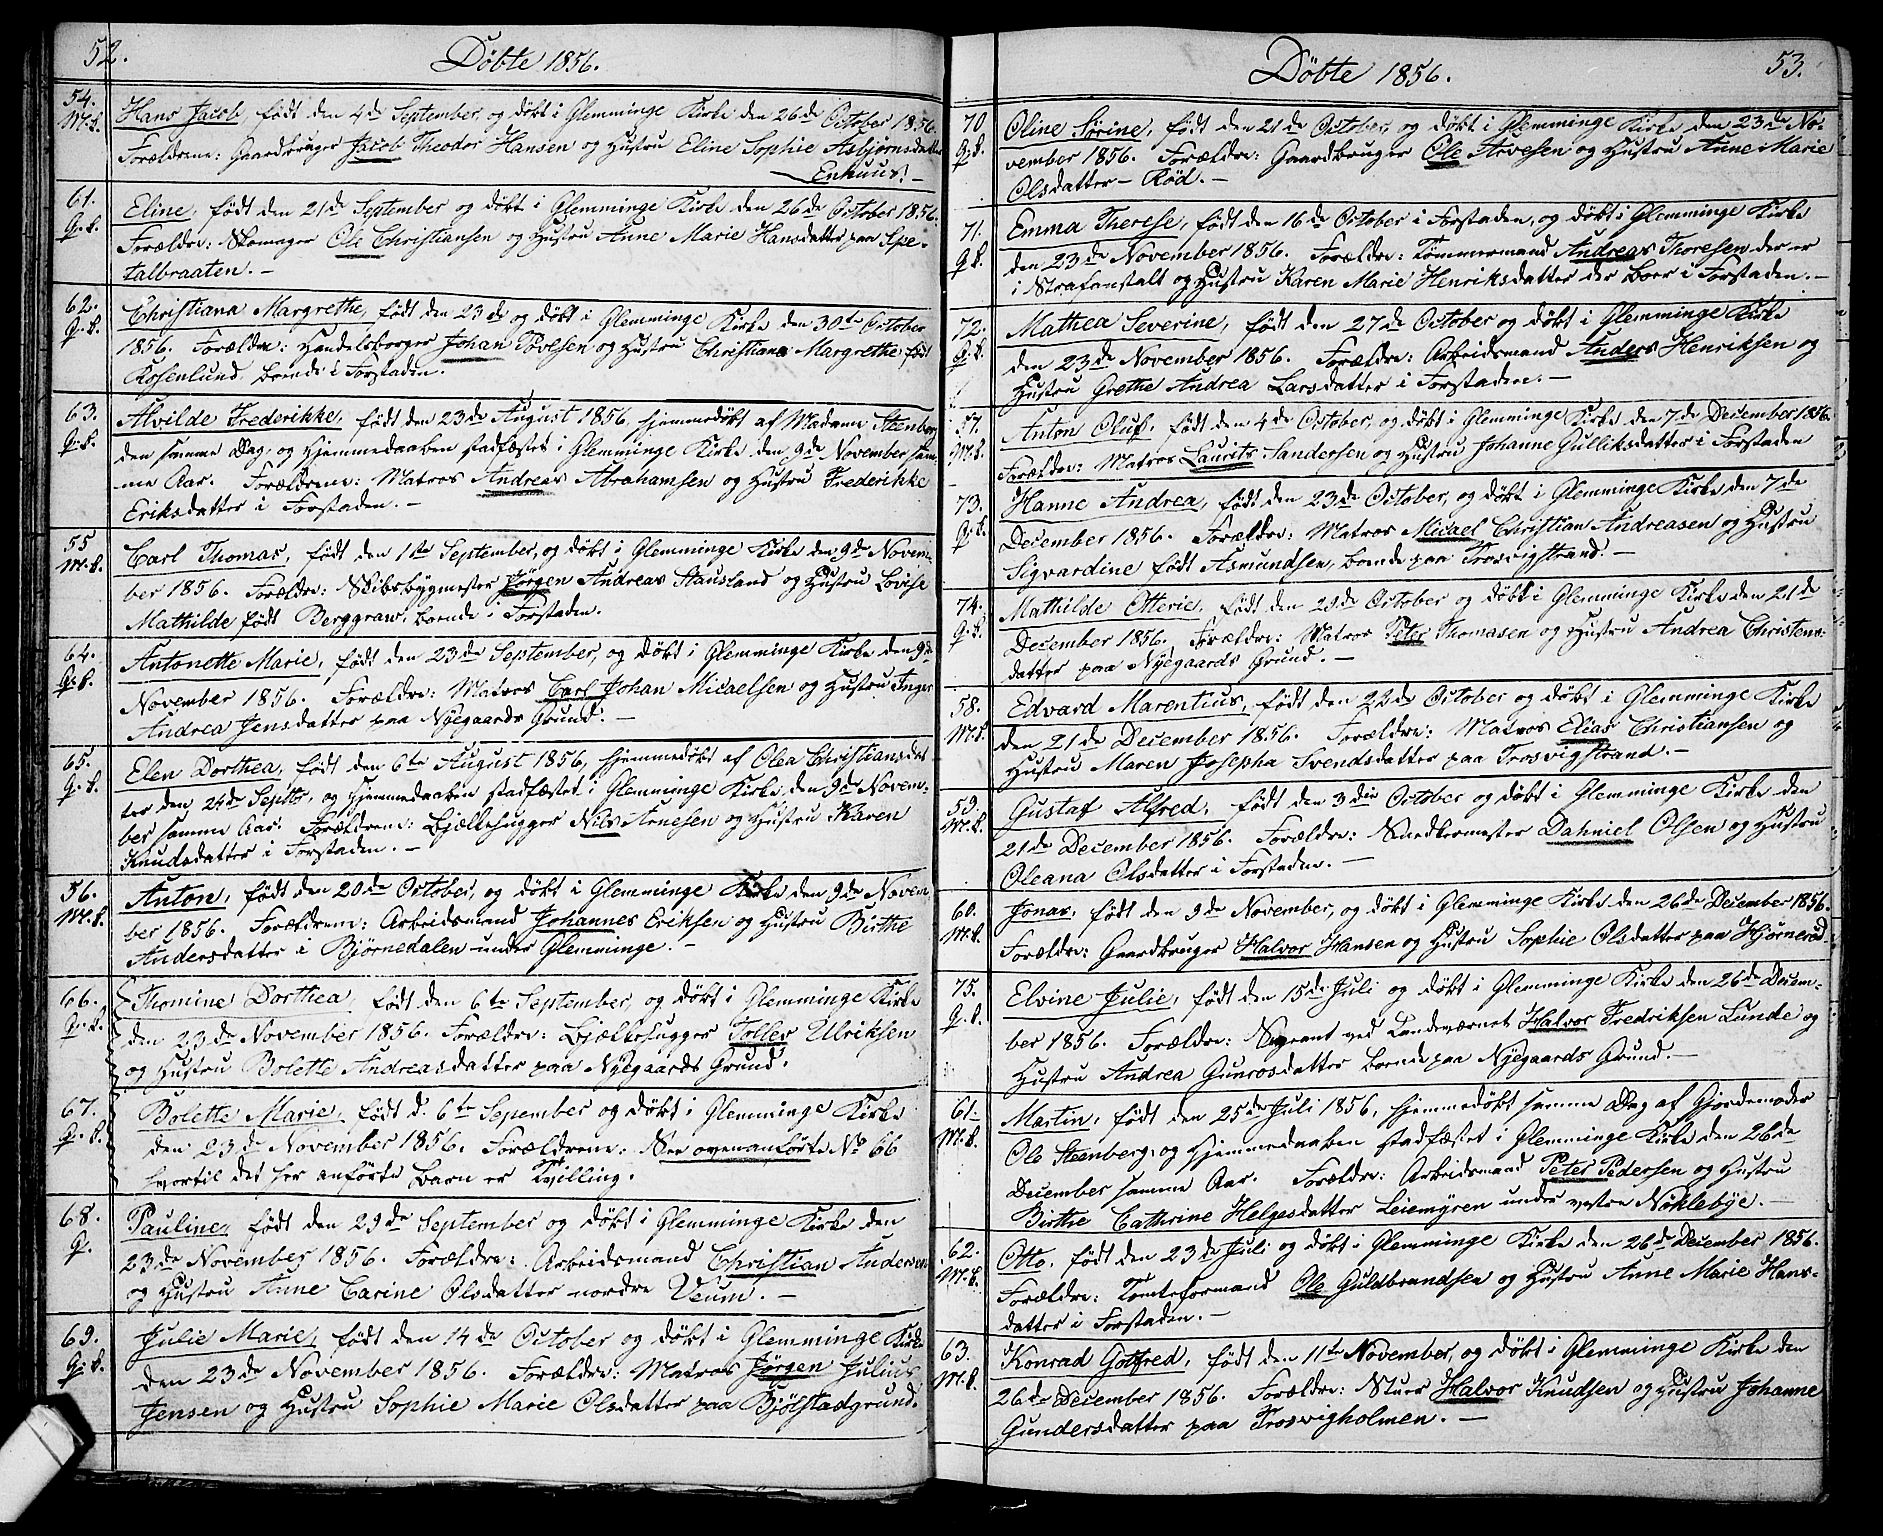 52.
Døbte 1856.
54. Hans Jacob, født den 4de September, og døbt i Glemminge Kirke den 26de October 1856.
M.k. Forældrene: Gaardbruger Jacob Theodor Hansen og Hustru Eline Sophie Asbjørnsdatter
Enhuus. –
61. Eline, født den 21de September og døbt i Glemminge Kirke den 26de October 1856.
Q.k. Forældre: Skomager Ole Christiansen og Hustru Anne Marie Hansdatter paa Spe-
talbraaten. –
62. Christiana Margrethe, født den 23de og døbt i Glemminge Kirke den 30te October
Q.k. 1856. Forældre: Handelsborger Johan Tovesen og Hustru Christiana Margrethe født
Rosenlund, boende i Forstaden.
63. Alvilde Frederikke, født den 23de August 1856, hjemmedøbt af Madame Steenberg
Q.k. den samme Dag, og Hjemmedaaben stadfæstet i Glemminge Kirke den 9de November sam-
me Aar. Forældrene: Matros Andreas Abrahamsen og Hustru Frederikke
Eriksdatter i Forstaden. –
55 Carl Thomas, født den 1ste September, og døbt i Glemminge Kirke den 9de Novem-
M.k. ber 1856. Forældre: Skibsbygmester Jørgen Andreas Stausland og Hustru Lovise
Mathilde født Berggraw, boende i Forstaden.
64. Antonette Marie, født den 23de September, og døbt i Glemminge Kirke den 9de
Q.k. November 1856. Forældre: Matros Carl Johan Micaelsen og Hustru Inger
Andrea Jensdatter paa Nyegaards Grund. –
65. Elen Dorthea, født den 6te August 1856, hjemmedøbt af Olea Christiansdat
Q.k. ter den 24de Septbr, og Hjemmedaaben stadfæstet i Glemminge Kirke den 9de Novem-
ber samme Aar. Forældrene: Bjælkehugger Nils Arnesen og Hustru Karen
Knudsdatter i Forstaden. –
56. Anton, født den 20de October, og døbt i Glemminge Kirke den 9de Novem
M.k. ber 1856. Forældrene: Arbeidsmand Johannes Eriksen og Hustru Birthe
Andersdatter i Bjørnedalen under Glemminge. –
66. Thomine Dorthea, født den 6te September, og døbt i Glemminge Kirke
Q.k. den 23de November 1856. Forældre: Bjælkehugger Toller Ulriksen
og Hustru Bolette Andreasdatter paa Nyegaards Grund.
67. Bolette Marie, født d. 6te September og døbt i Glemminge Kirke
Q.k. den 23de November 1856. Forældrene: See ovenanførte No 66
hvortil det her anførte Barn er Tvilling.
68. Pauline, født den 29de September og døbt i Glemminge Kirke den
Q. 23de November 1856. Forældre: Arbeidsmand Christian Andersen
og Hustru Anne Carine Olsdatter nordre Veum. –
69. Julie Marie, født den 14de October og døbt i Glemminge Kirke
Q.k. den 23de November 1856. Forældre: Matros Jørgen Julius
Jensen og Hustru Sophie Marie Olsdatter paa Bjølstadgrund.
53.
Døbte 1856.
70 Oline Sørine, født den 21de October, og døbt i Glemminge Kirke den 23de No-
Q.k. vember 1856. Forældre: Gaardbruger Ole Arvesen og Hustru Anne Marie
Olsdatter – Rød. –
71. Emma Therese, født den 16de October i Forstaden, og døbt i Glemminge Kirke
Q.k. den 23de November 1856. Forældre: Tømmermand Andreas Thoresen der er
i Strafanstalt og Hustru Karen Marie Henriksdatter der boer i Forstaden. –
72. Mathea Severine, født den 27de October og døbt i Glemminge Kirke
Q.k. den 23de November 1856. Forældre: Arbeidsmand Anders Henriksen og
Hustru Grethe Andrea Larsdatter i Forstaden. –
57. Anton Oluf, født den 4de October, og døbt i Glemminge Kirke den 7de December 1856.
M.k. Forældre: Matros Laurits Sandersen og Hustru Johanne Gulliksdatter i Forstaden
73. Hanne Andrea, født den 23de October, og døbt i Glemminge Kirke den 7de
Q.k. December 1856. Forældre: Matros Micael Christian Andreasen og Hustru
Sigvardine født Asmundsen, boende paa Trosvigstrand. –
74. Mathilde Otterie, født den 29de October og døbt i Glemminge Kirke den 21de
Q.k. December 1856. Forældre: Matros Peter Thomasen og Hustru Andrea Christens-
datter paa Nyegaards Grund. –
58. Edvard Marentius, født den 22de October og døbt i Glemminge Kirke
M.k. den 21de December 1856. Forældre: Matros Elias Christiansen og
Hustru Maren Josepha Svendsdatter paa Trosvigstrand. –
59. Gustaf Alfred, født den 3die October og døbt i Glemminge Kirke den
M.k. 21de December 1856. Forældre: Snedkermester Dahniel Olsen og Hustru
Oleana Olsdatter i Forstaden. –
60. Jonas, født den 9de November, og døbt i Glemminge Kirke den 26de December 1856.
M.k. Forældre: Gaardbruger Halvor Hansen og Hustru Sophie Olsdatter paa Hjørnerød.
75. Elvine Julie, født den 15de Juli og døbt i Glemminge Kirke den 26de Decem-
Q.k. ber 1856. Forældre: Sergeant ved Landeværnet Halvor Fredriksen Lunde og
Hustru Andrea Gunrosdatter boende paa Nyegaards Grund. –
61. Martin, født den 25de Juli 1856, hjemmedøbt samme Dag af Gjordemoder
M.k. Ole Steenberg, og Hjemmedaaben stadfæstet i Glemminge Kirke den 26de
December samme Aar. Forældre: Arbeidsmand Peter Pedersen og Hustru
Birthe Cathrine Helgesdatter Leiemyren under vestre Nøklebye. –
62. Otto, født den 23de Juli og døbt i Glemminge Kirke den 26de December 1856.
M.k. Forældre: Tomteformand Ole Guldbrandsen og Hustru Anne Marie Hans-
datter i Forstaden. –
63. Konrad Gotfred, født den 11te November, og døbt i Glemminge Kirke den
M.k. 26de December 1856. Forældre: Stuer Halvor Knudsen og Hustru Johanne
Gundersdatter paa Trosvigholmen. –